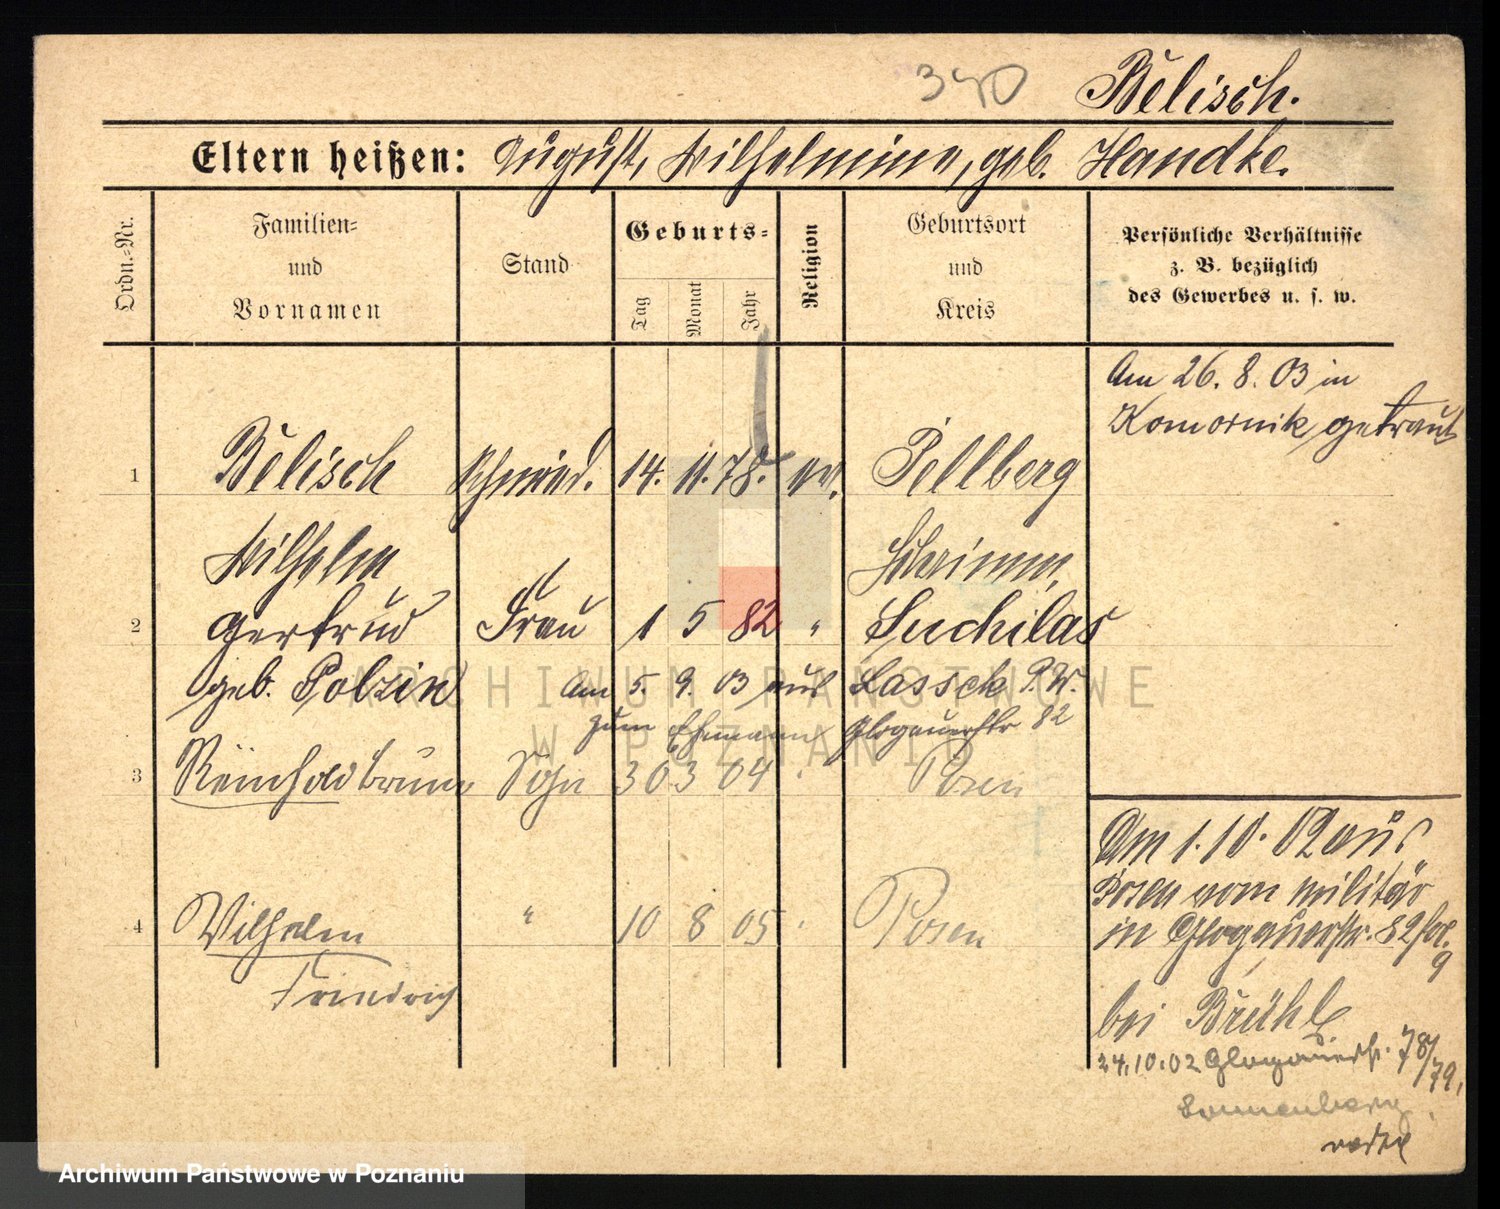 390
Belisch.
Eltern heißen: August, Wilhelmine, geb. Handke.
Ordn.-Nr.
Familien- und Vornamen
Stand
Geburts-
Tag
Monat
Jahr
Religion
Geburtsort und Kreis
Persönliche Verhältnisse
z. B. bezüglich
des Gewerbes u. s. w.
Am 26. 8. 03 in
Komornik getraut
1 Belisch Schmied. 14. 11. 78. ev. Pillberg
Wilhelm Schrimm,
2 Gertrud Frau 1 5 82 " Suchilas
geb. Polzin am 5. 9. 03 aus Lassek P.W.
zum Ehemann Glogauerstr 82
3 Reinhold Bruno Sohn 30 3 04 " Posen
Am 1. 10. 02 aus
Posen vom Militär
in Glogauerstr. 82
9
4 Wilhelm " 10 8 05 " Posen
Friedrich
bei Brühl
24.10.02 Glogauerstr. 78/79,
Sonnenberg
ARCHIWUM PAŃSTWOWE
W POZNANIU
Archiwum Państwowe w Poznaniu